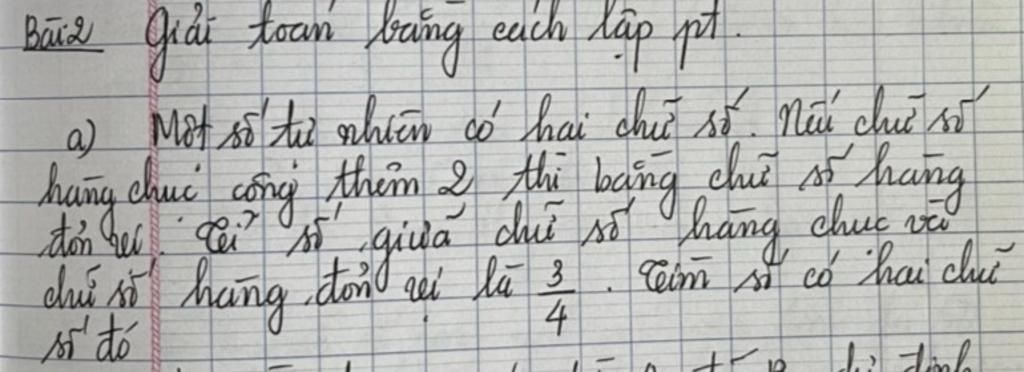 Bài 2 Giải toán bằng cách lập pt.
a) Một số tự nhiên có hai chữ số. Nếu chữ số
hàng chục cộng thêm 2 thì bằng chữ số hàng
đơn vị. Tỉ số giữa chữ số hàng chục và
chữ số hàng đơn vị là 3/4. Tìm số có hai chữ
số đó